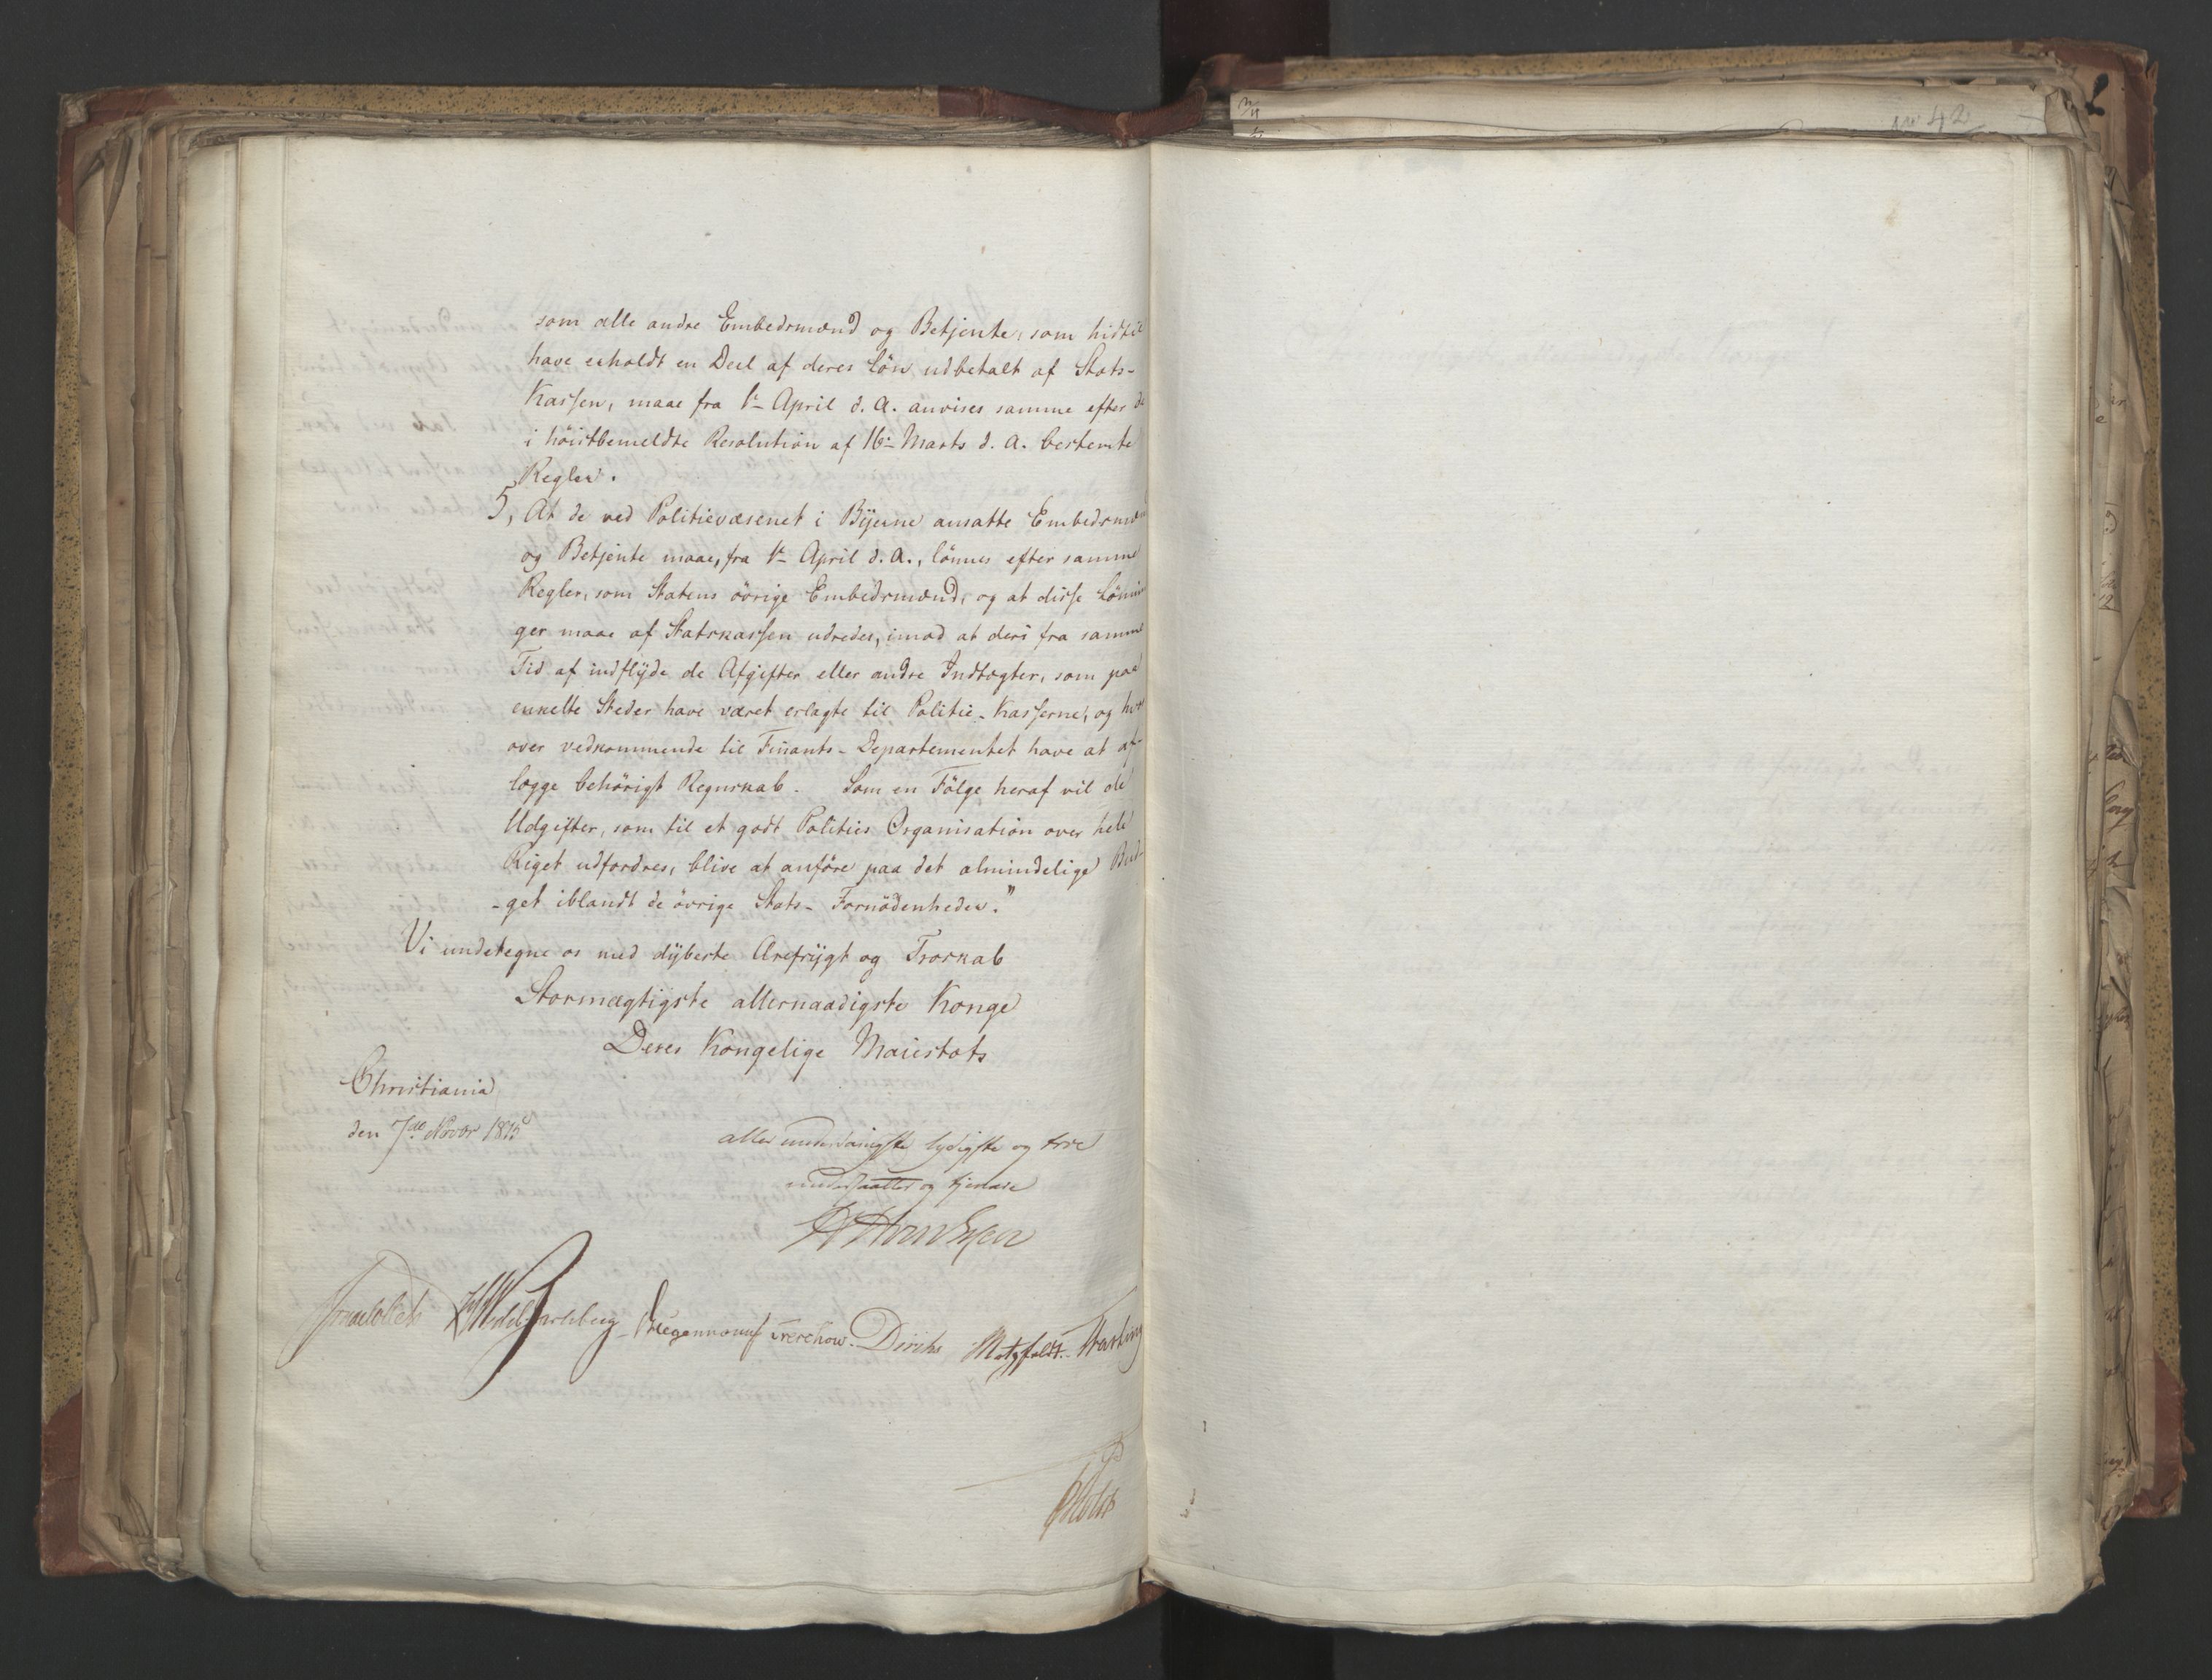 som alle andre Embedsmænd og Betjente, som hidtil
have erholdt en Deel af deres Lön udbetalt af Stats-
Kassen, maae fra 1ste April d. A. anvises samme efter de
i höistbemeldte Resolution af 16de Marts d. A. bestemte
Regler.
5, At de ved Politievæsenet i Byerne ansatte Embedsmænd
og Betjente maae, fra 1ste April d. A., lönnes efter samme
Regler, som Statens övrige Embedsmænd, og at disse Lönnin
ger maae af Statskassen udredes, imod at deri fra samme
Tid af indflyde de Afgifter eller andre Indtægter, som paa
enkelte Steder have været erlagte til Politie-Kasserne, og hvor
over vedkommende til Finants-Departementet have at af-
lægge behörigt Regnskab. Som en Fölge heraf vil de
Udgifter, som til et godt Polities Organisation over hele
Riget udfordres, blive at anföre paa det almindelige Bud-
-get iblandt de övrige Stats-Fornödenheder."
Vi undetegne os med dybeste Ærefrygt og Troskab
Stormægtigste allernaadigste Konge
Deres Kongelige Maiestæts
Christiania
den 7de Novbr 1815
allerunderdanigste lydigste og troe
undersaatter og tjenere
Sommerhielm Wedel-Jarlsberg Krogh Treschow. Diriks Motzfeldt. Hæsling
Holst
No 42